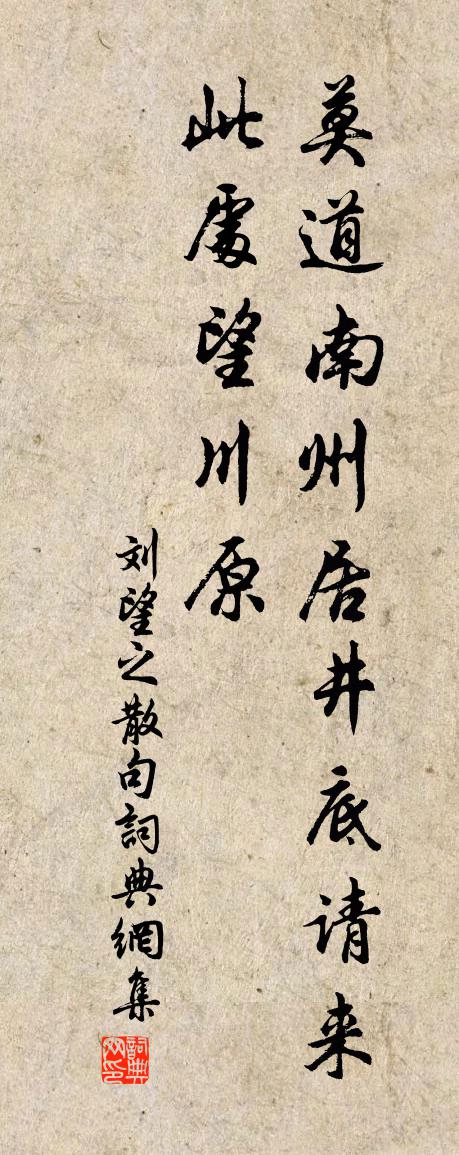 莫道南州居井底请来
此處望川原
刘望之散句詞典網集
詞典網印